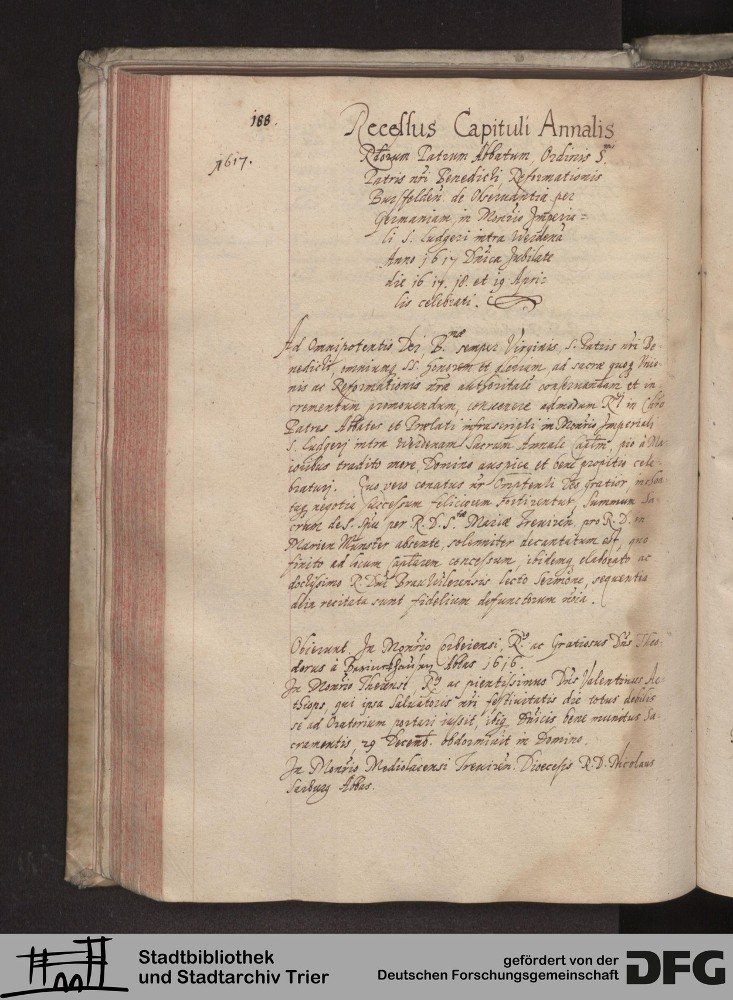 188.
Recessus Capituli Annalis
1617.
Rdorum Patrum Abbatum, Ordinis S.mi
Patris nri Benedicti, Reformationis
Bursfelden. de Observantia per
Germaniam, in Monrio Imperia=
li S. Ludgeri intra Werdena
Anno 1617 Dnica Jubilate
die 16 17. 18. et 19 Apri=
lis celebrati.
Ad Omnipotentis Dei, B.mae semper Virginis, S. Patris nri Be-
nedicti, omniumq SS. honorem et gloriam, ad sacrae quoq Unio-
nis ac Reformationis nrae authoritate continuandam et in-
crementum promovendum, convenere admodum R.di in Chro
Patres Abbates et Praelati infrascripti in Monrio Imperiali
S. Ludgeri intra Werdenam Sacrum Annale Caplm, pio à Ma-
ioribus tradito more, Domino auspice et bene propitio cele-
braturi. Quo vero conatus nr Omptenti Deo gratior
negotia successum feliciorem sortirentur, Summum Sa-
crum de S. Spu per R. D. S.tae Mariae Treviren, pro R. D. in
Marien Münster absente, solemniter decantatum est, quo
finito ad locum Capitularem concessum, ibidemq elaborato ac
doctissimo R. Dni Brauwilerensis lecto sermone, sequentia
recitata sunt fidelium defunctorum noia.
Obierunt. In Monrio Corbeiensi, R.s ac Gratiosus Dns Theo-
dorus à Abbas 1616.
In Monrio Therensi R.s ac pientissimus Dns Valentinus Ae-
thiops, qui ipsa Salvatoris nri festivitatis die totus debilis
se ad Oratorium portari iussit, ibiq Dnicis bene munitus Sa-
cramentis, 29 Decemb. obdormivit in Domino.
In Monrio Mediolacensi Treviren. Dioecesis R. D. Nicolaus
Sarburg Abbas.
Stadtbibliothek
und Stadtarchiv Trier
gefördert von der
Deutschen Forschungsgemeinschaft
DFG